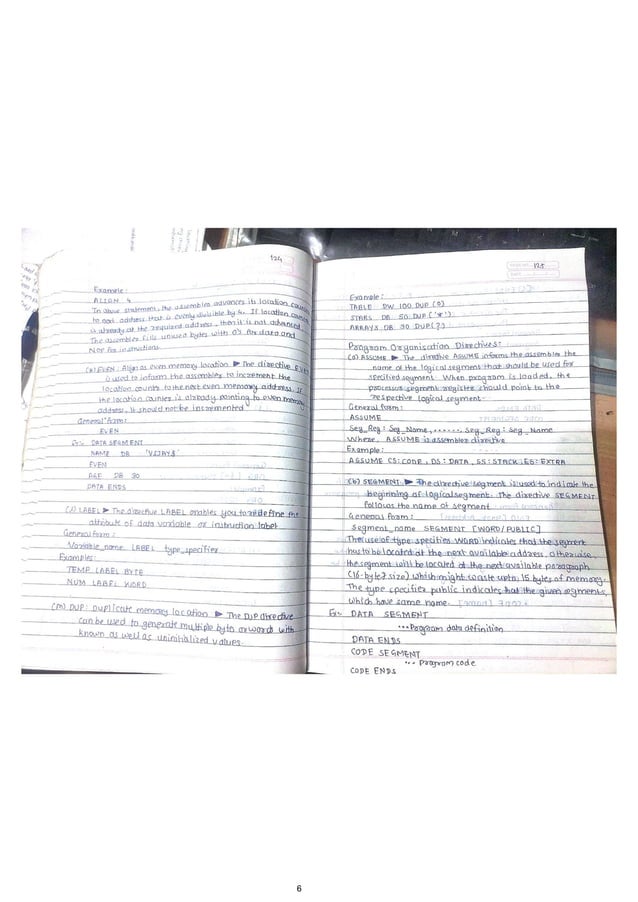 124
Example:
ALIGN 4
In above statement, the assembler advances its location counter
to next address that is evenly divisible by 4. If location counter
is already at the required address, then it is not advanced
The assembler fills unused bytes with 0's for data and
NOP for instructions.
EVEN: Align as even memory location ▶ The directive EVEN
is used to inform the assembler to increment the
location counter to the next even memory address. If
the location counter is already pointing to even memory
address, it should not be incremented
General form:
EVEN
Ex:- DATA SEGMENT
NAME DB 'VIJAY$'
EVEN
AGE DB 30
DATA ENDS
(l) LABEL ▶ The directive LABEL enables you to redefine the
attribute of data variable or instruction label
General form:
Variable_name LABEL type_specifier
Examples:
TEMP LABEL BYTE
NUM LABEL WORD
(m) DUP: Duplicate memory location ▶ The DUP directive
can be used to generate multiple byte or words with
known as well as uninitialized values.
125
Example:
TABLE DW 100 DUP (0)
STARS DB 50 DUP ('*')
ARRAYS DB 30 DUP(?)
Program Organisation Directives:
(a) ASSUME ▶ The diretive ASSUME informs the assembler the
name of the logical segment that should be used for
specified segment. When program is loaded, the
processor segment register should point to the
respective logical segment.
General form:
ASSUME
Seg_Reg: Seg_Name, ...... Seg_Reg: Seg_Name
Where, ASSUME is assembler directive
Example:
ASSUME CS:CODE, DS: DATA, SS:STACK, ES: EXTRA
(b) SEGMENT ▶ The directive segment is used to indicate the
beginning of logical segment. The directive SEGMENT
follows the name of segment
General form:
Segment_name SEGMENT [WORD/PUBLIC]
The use of type specifies WORD indicates that the segment
has to be located at the next available address, otherwise,
the segment will be located at the next available paragraph
(16-byte size) which might waste upto 15 bytes of memory.
The type specifier public indicates that the given segments,
which have same name
Ex:- DATA SEGMENT
...Program data definition
DATA ENDS
CODE SEGMENT
... program code
CODE ENDS
6